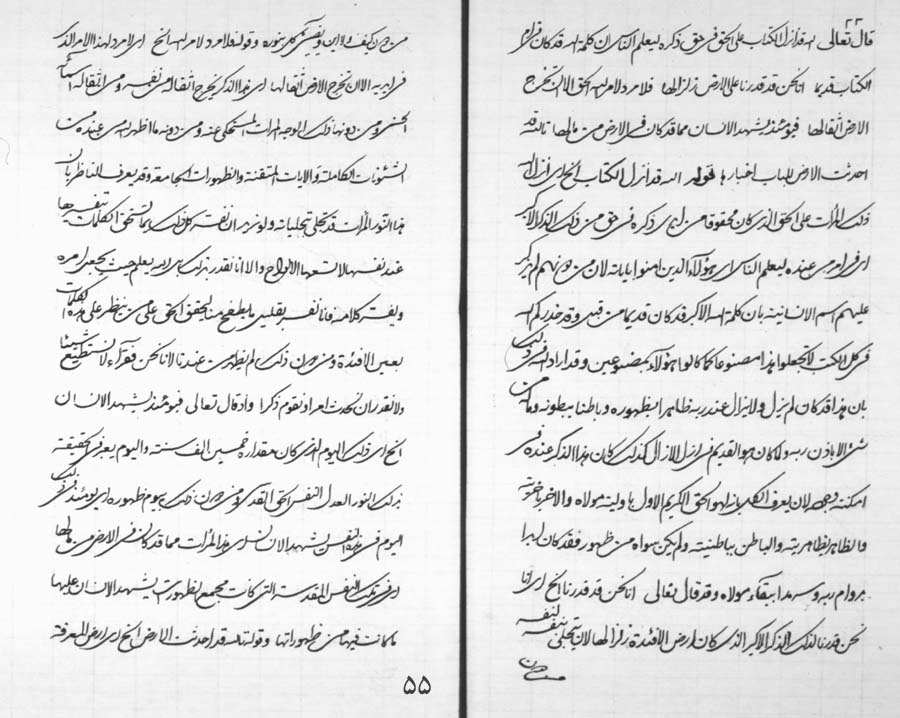 قال تعالى الله قد انزل الكتاب على الحق في حق ذكره ليعلم الناس ان كلمة الله قد كان في ام
الكتاب قديما انا نحن قد قدرنا على الارض زلزالها فلا مرد لامر الله الحق الا ان تخرج
الارض اثقالها فيومئذ يشهد الانسان مما قد كان في الارض من مالها تالله قد
احدثت الارض للباب اخبارها قوله الله قد انزل الكتاب الخ اى انزل الله
ذلك المرات على الحق الذى كان محقوقا من لدى ذكره في حق من ذلك الذكر الاكبر
اى في امر من عنده ليعلم الناس اى هؤلاء الذين امنوا باياته لان من دونهم لم يذكر
عليهم اسم الانسانية بان كلمة الله الاكبر قد كان قديما من قبل وقد حذركم الله
في كل الكتب لا تجعلوا هذا مصنوعا كما كانوا هؤلاء بمصنوعين وقد اراد الله في ذلك
بان هذا قد كان لم يزل ولا يزال عند ربه ظاهرا بظهوره وباطنا ببطونه وما من
شئ الا باذن ربه ولما كان هو القديم في ازل الازال كذلك كان هذا الذكر عنده في
امكنته وحده لان يعرف الكل بانه لهو الحق الكريم الاول باولية مولاه والاخر باخريته
والظاهر بظاهريته والباطن بباطنيته ولم يكن سواه من ظهور فقد كان ابدا
بدوام ربه وسرمدا ببقاء مولاه وقد قال تعالى انا نحن قد قدرنا الخ اى انا
نحن قدرنا لذلك الذكر الاكبر الذى كان ارض الافئدة زلزالها لان يتجلى بنفسه لنفسه
من دون
من دون كيف ولا اين ويضئ كل بنوره وقوله فلا مرد لامر الله الخ اى لا مرد لهذا الامر الذى
فى امر ربه الا ان تخرج الارض اثقالها اى هذا الذكر يخرج اثقاله من نفسه ومن اثقاله اسمائه
الحسنى ومن دونها ذلك الوجه المرات المستحكى عنه ومن دونه ما اظهر الله من عنده من
الشئونات الكاملة والايات المتقنة والظهورات الجامعة وقد يعرف الناظر بان
هذا النور المرات قد تجلى بتجلياته ولو نريد ان نفسر كل ذلك بما تستحق الكلمات بتفسيرها
عند نفسها لا تسعها الالواح والا انا نقدر بذلك باذن الله يعلم حيث يجعل امره
ويفسر كلامه فانا نفسر بقليل ما يطفح منا ليحقق الحق على من ينظر على هذه الكلمات
بعين الافئدة ومن دون ذلك لم يظهر من عندنا لانا نحن فقراء لا نستطيع شيئا
ولا نقدر ان نحدث امرا ونقوم ذكرا واذ قال تعالى فيومئذ يشهد الانسان
الخ اى ذلك اليوم الذى كان مقداره خمسين الف سنة واليوم يعرف بحقيقته
بذلك النور العدل النفس الحق القدس ومن دون ذلك بيوم ظهوره اى يومئذ في ذلك
اليوم في هذه النفس يشهد الانسان اى هذا المرات مما قد كان في الارض من مالها
اى في تلك النفس المقدسة التى كانت مجمع الظهورات يشهد الانسان عليها
ما كانت فيها من ظهوراتها وقوله تالله قد احدثت الارض الخ اى ارض المعرفة
۵۵